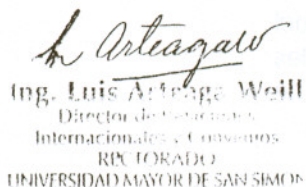 L Arteagaw
Ing. Luis Arteaga Weill
Director de Relaciones
Internacionales y Convenios
RECTORADO
UNIVERSIDAD MAYOR DE SAN SIMON